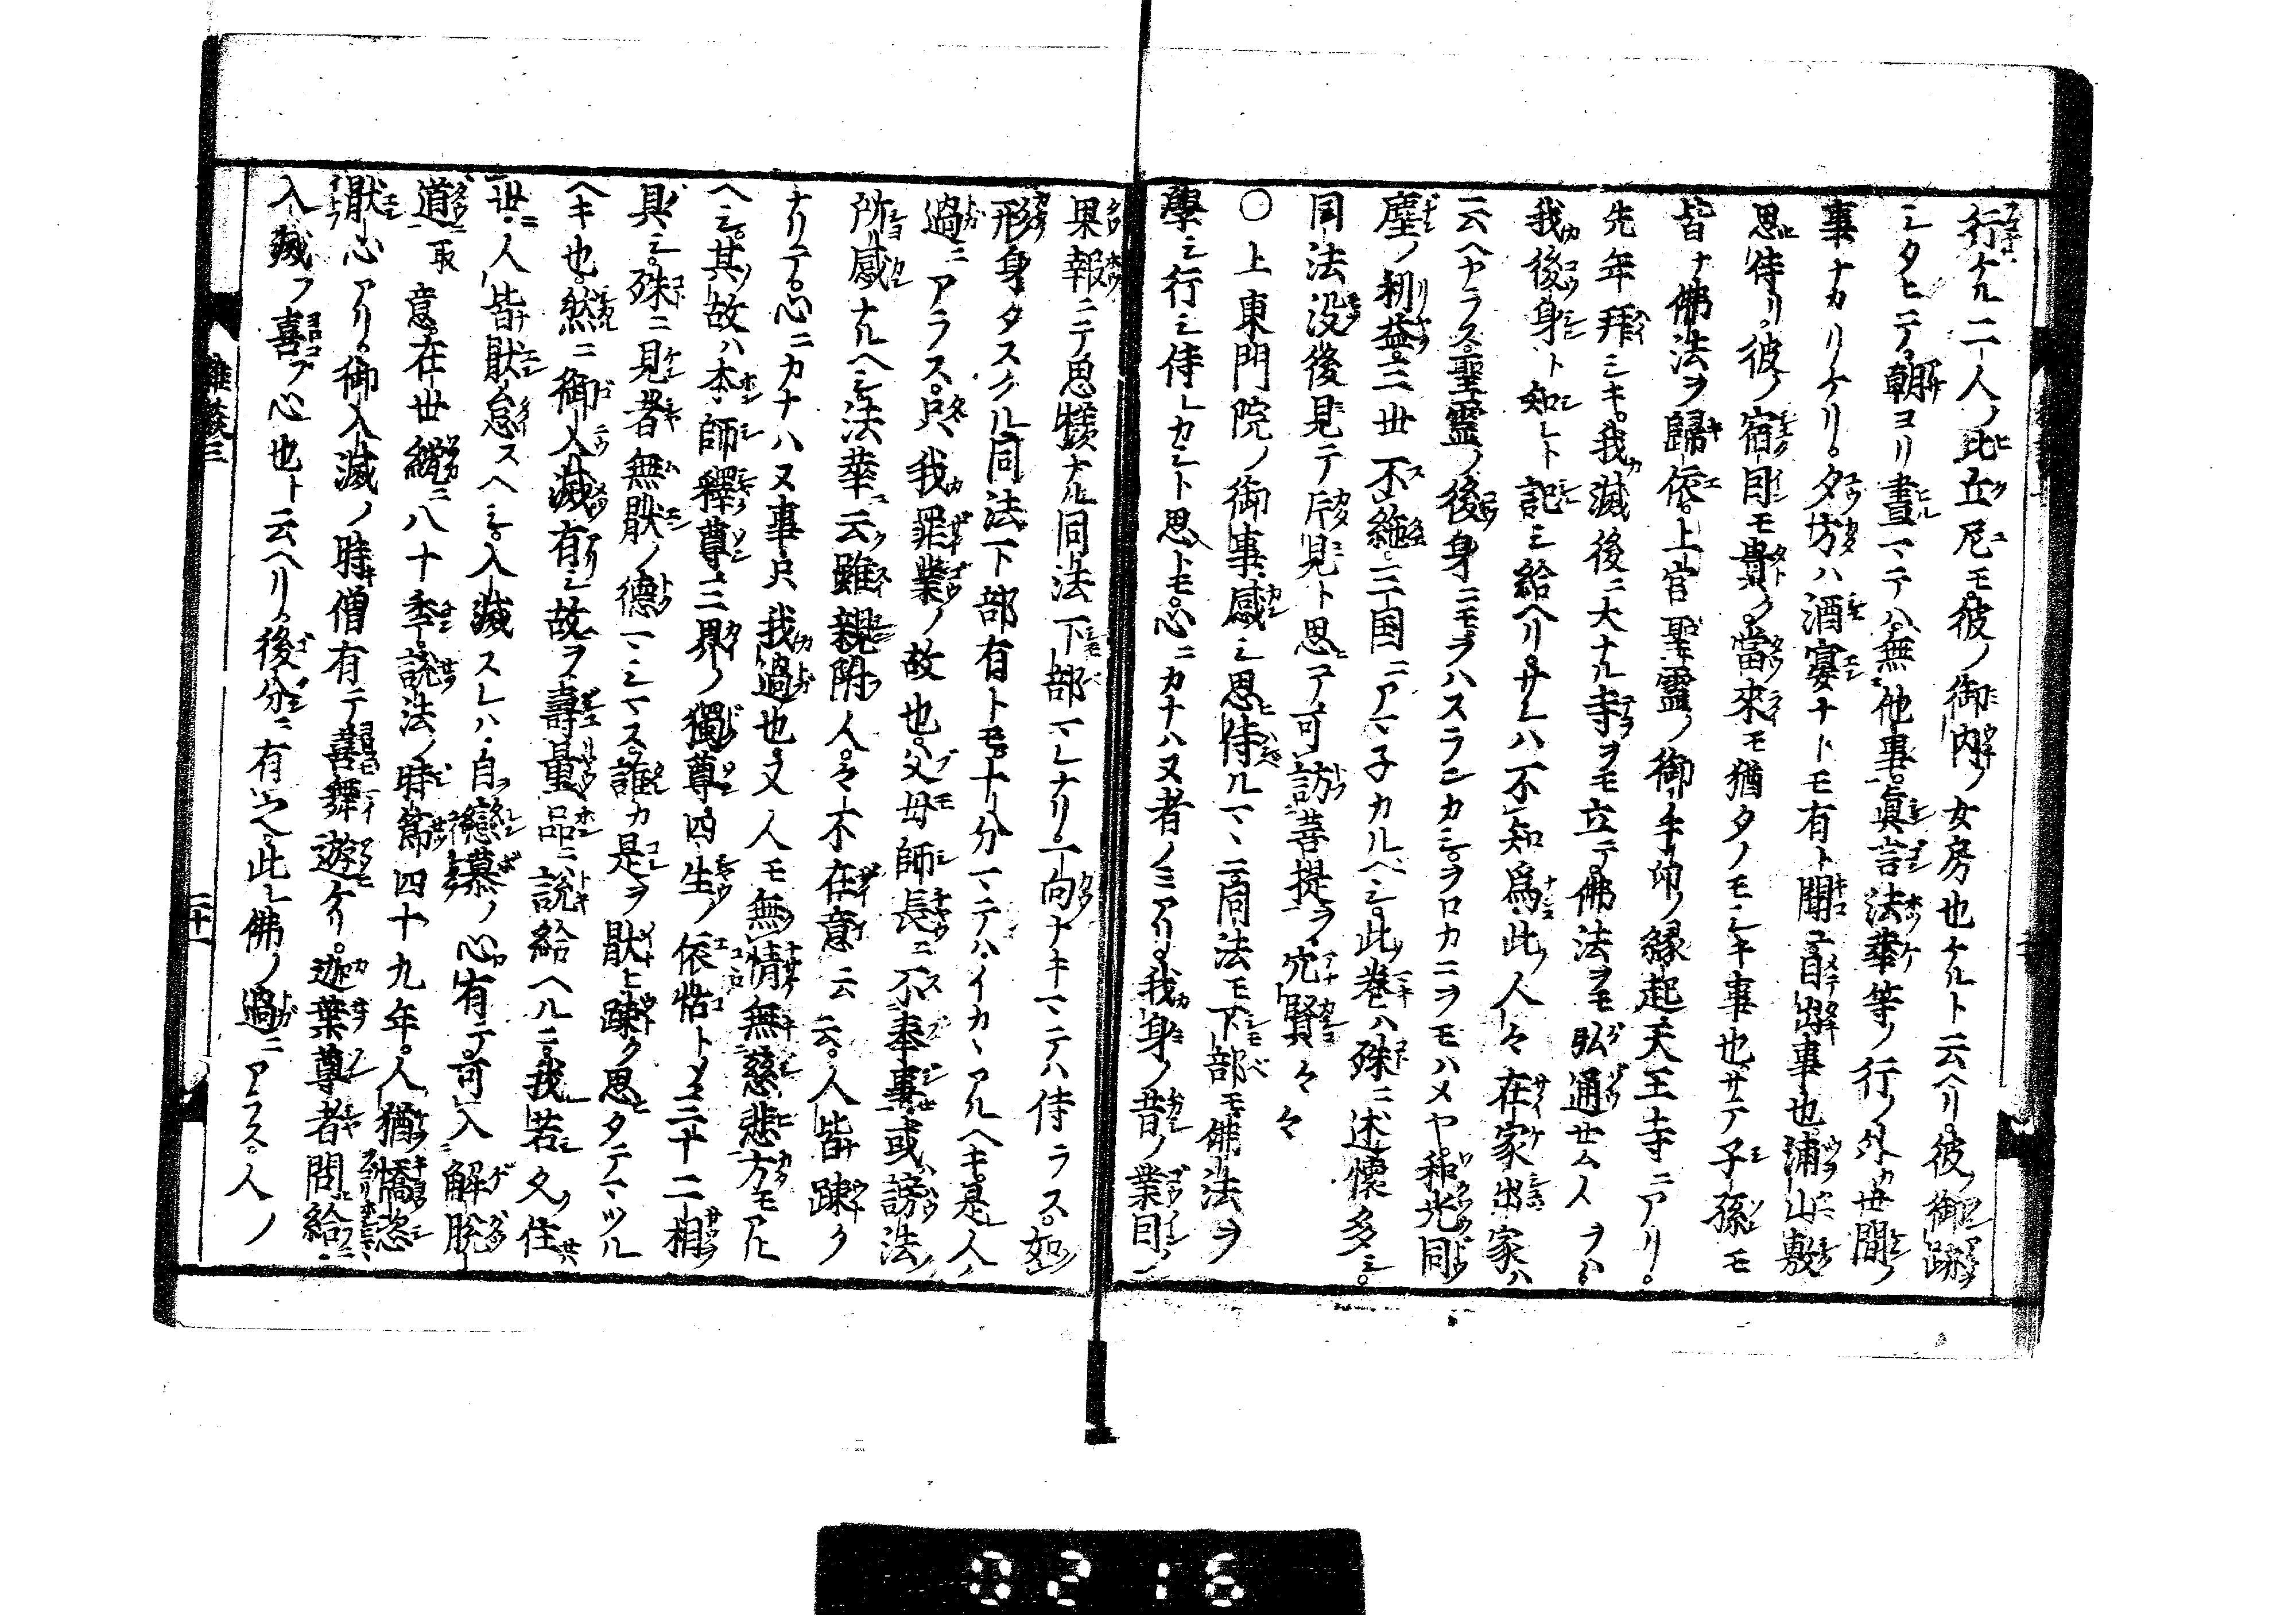 行ケル二人ノ比丘尼モ彼ノ御内ノ女房也ケルト云ヘリ。彼ノ御跡
シタヒテ。朝ヨリ晝マテハ。無他事。眞言法華等ノ行ノ外カ世間ノ
事ナカリケリ。夕方ハ酒宴ナトモ有ト聞ユ。目出事也。浦山敷
思侍リ。彼ノ宿因モ貴ク。當來モ猶タノモシキ事也。サテ子孫モ
皆ナ佛法ヲ歸依。上宮聖靈ノ御手印ノ縁起天王寺ニアリ。
先年拜シキ。我滅後ニ大ナル寺ヲモ立テ。佛法ヲモ弘通セム人ヲハ
我後身ト知レト記シ給ヘリ。サレハ不知爲此ノ人々在家出家ハ
云ヘヤラス。聖靈ノ後身ニモヲハスランカシ。ヲロカニヲモハメヤ。和光同
塵ノ利益。三世不絶。三国ニアマ子カルヘシ。此巻ハ殊ニ述懷多シ。
同法没後見テ片見ト思ヒ可訪菩提ヲ。穴賢々々
〇上東門院ノ御事。感シ思侍ルマヽニ同法モ下部モ佛法ヲ
學シ行シ侍レカシト思トモ。心ニカナハヌ者ノミアリ。我身ノ昔ノ業因ノ
果報ニテ思樣ナル同法下部マレナリ。一向ナキマテハ侍ラス。如
形身タスクル同法下部有トモ。十分マテハイカヽアルヘキ。是人ノ
過ニアラス。只我罪業ノ故也。父母師長ニ不奉事或ハ謗法ノ
所感ナルヘシ。法華云雖親附人。々不在意云云。人皆踈ク
ナリテ。心ニカナハヌ事只我過也。又人モ無情無慈悲方モアル
ヘシ。其故ハ本師釋尊ハ三界ノ獨尊。四生ノ依怙トメ三十二相
具シ。殊ニ見者無猒ノ德マシマス。誰カ是ヲ猒ヒ踈ク思タテマツル
ヘキ也。然ニ御入滅有シ故ヲ壽量品ニ説給ヘルニ。我若久住
世。人皆猒怠スヘシ。入滅スレハ。自戀慕ノ心有テ。可入解脱
道取意。在世纔ニ八十季。説法ノ時節四十九年。人猶憍恣
猒心アリ。御入滅ノ時僧有テ喜舞遊ケリ。迦葉尊者問給
入滅ヲ喜フ心也ト云ヘリ。後分ニ有之。此レ佛ノ過ニアラス。人ノ
雜談三
二十一
0216